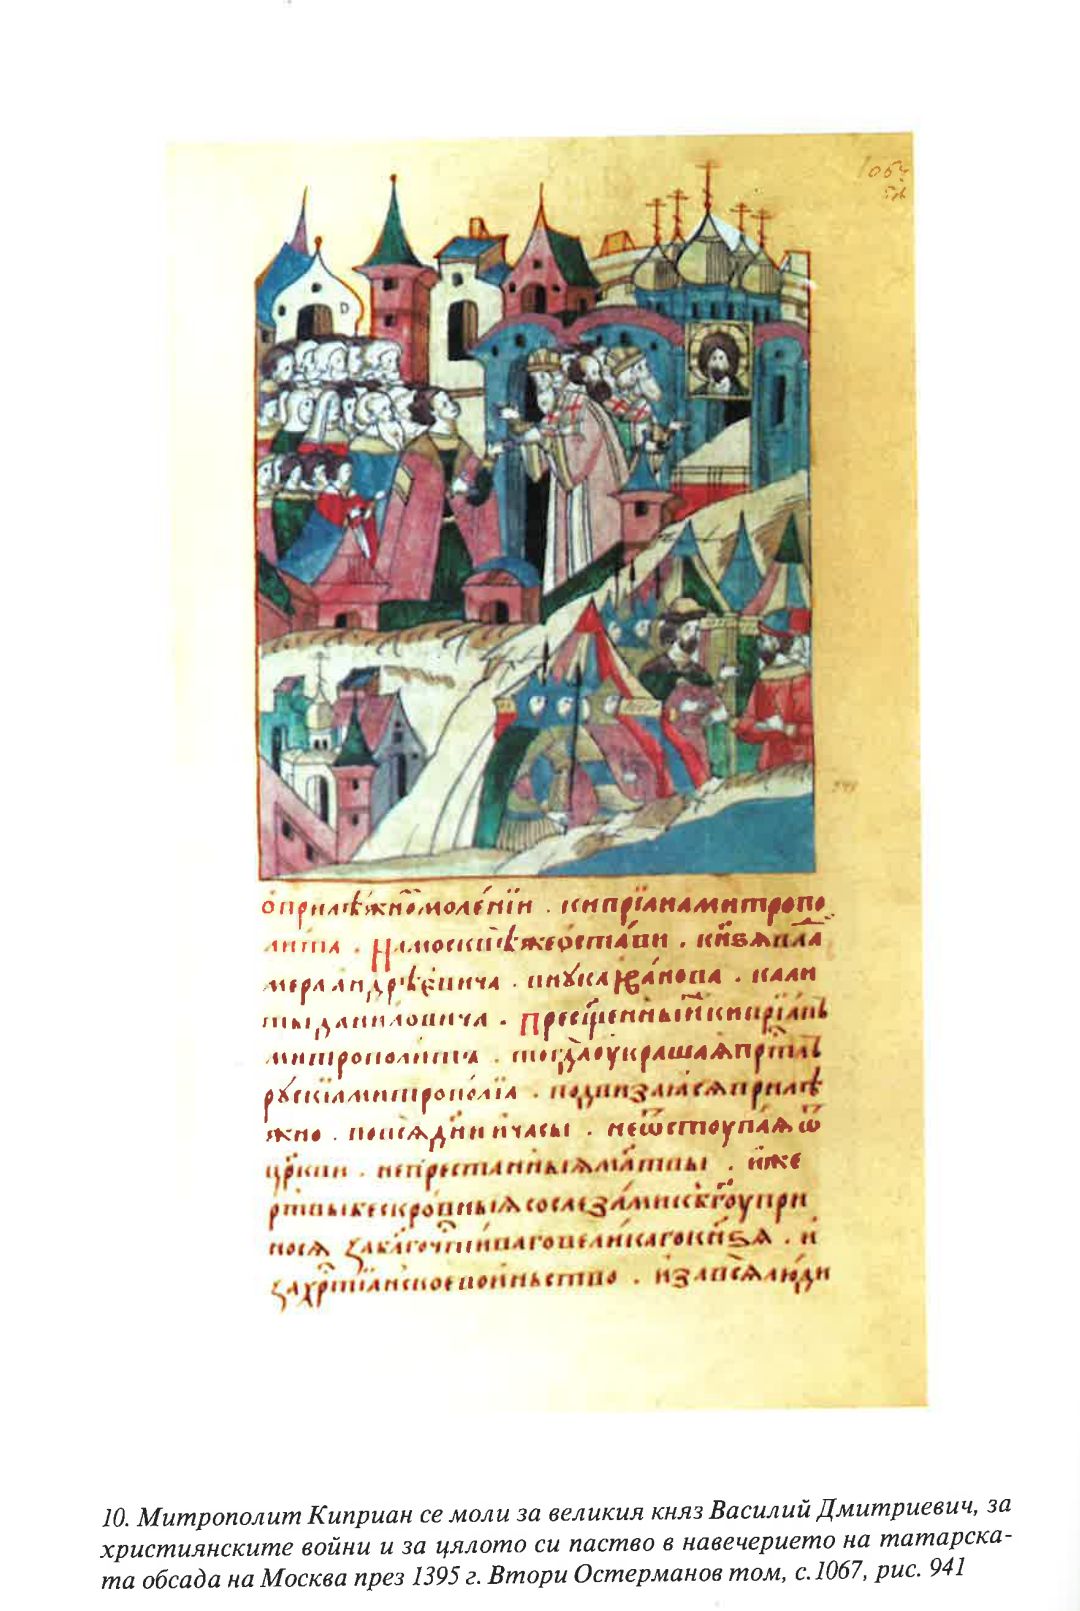 ѻ прилѣжномъ моленіи . кипріана митропо
лита . На москвѣ же ѻстави . кнѧзѧ вла
мера андрѣевича . внука іванова . кали
ты даниловича . Пресщенный кипріанъ
митрополитъ . тогда оукрашаѧ прстлъ
рускіа митрополіа . подвизаасѧ прилѣ
жно . по всѧ дни и часы . не ѿстоупаѧ ѿ
цркви . непрестанныѧ млтвы . и же
ртвы бескровныѧ со слезами къ бгоу при
носѧ за блгочтиваго великаго кнѕѧ . и
за хртіанское воиньство . и за всѧ люди
10. Митрополит Киприан се моли за великия княз Василий Дмитриевич, за
християнските войни и за цялото си паство в навечерието на татарска-
та обсада на Москва през 1395 г. Втори Остерманов том, с. 1067, рис. 941